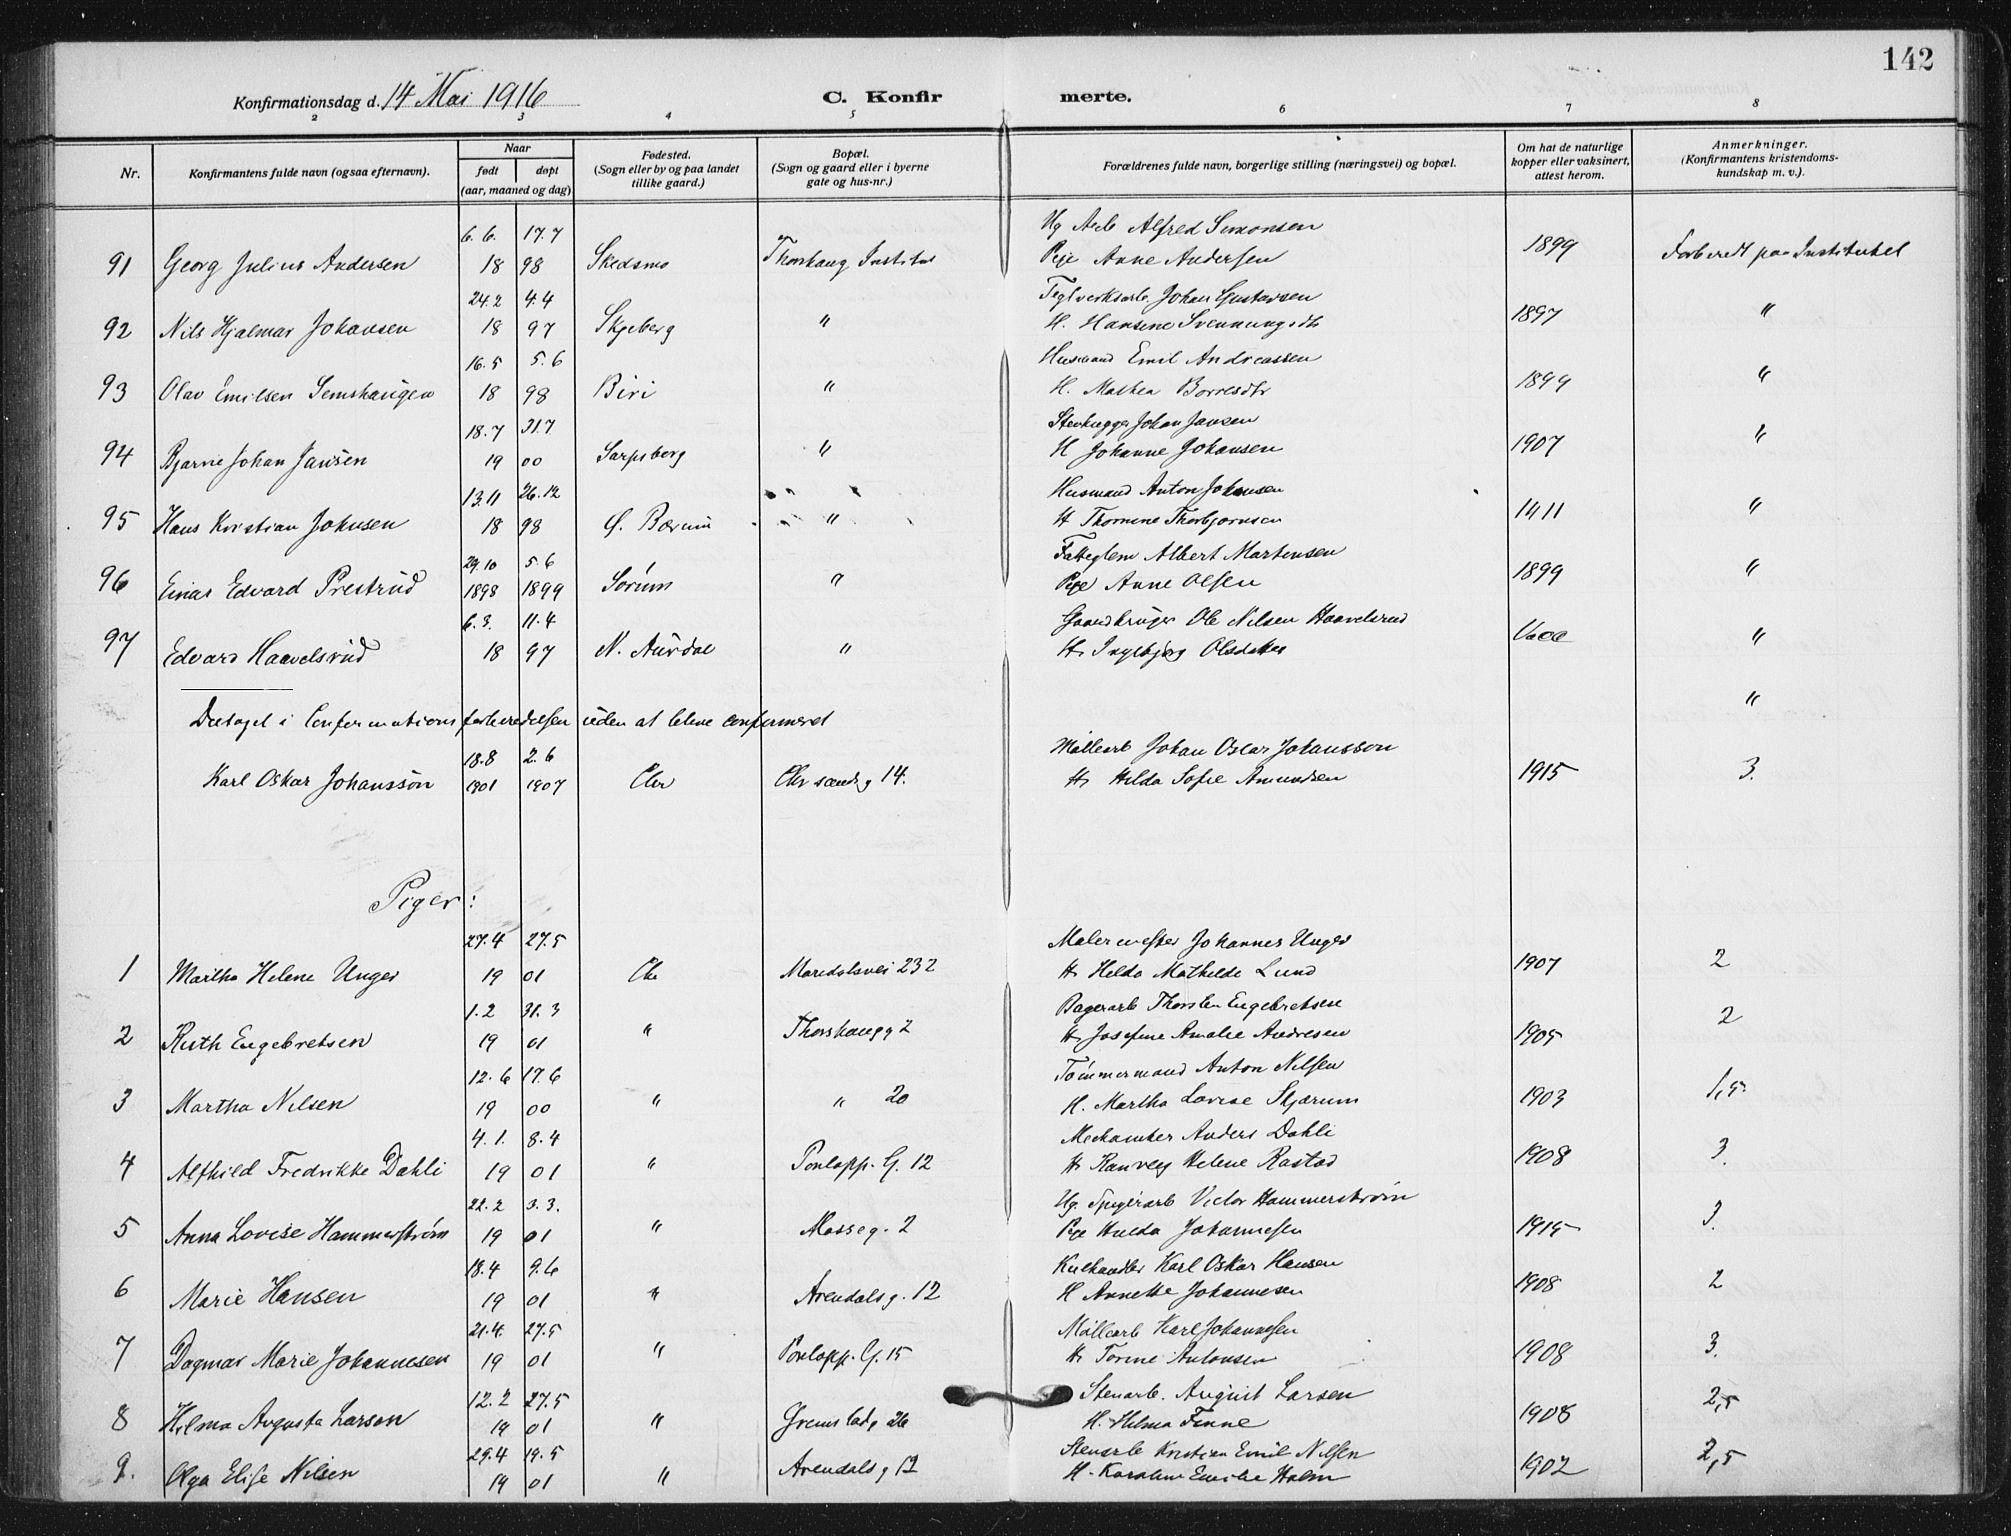 142
Konfirmationsdag d. 14 Mai 1916 C. Konfir merte.
2 3 4 5 6 7 8
Nr. Konfirmantens fulde navn (ogsaa efternavn). Naar født døpt (aar, maaned og dag) Fødested. (Sogn eller by og paa landet tillike gaard.) Bopæl. (Sogn og gaard eller i byerne gate og hus-nr.) Forældrenes fulde navn, borgerlige stilling (næringsvei) og bopæl. Om hat de naturlige kopper eller vaksinert, attest herom. Anmerkninger. (Konfirmantens kristendoms-kundskap m. v.).
6.6. 17.7 Ug Arb Alfred Simonsen
91 Georg Julius Andersen 18 98 Skedsmo Thorshaug Institut Pige Anne Andersen 1899 Forberedt paa Institutet
24.2 4.4 Teglverksarb. Johan Gustavsen
92 Nils Hjalmar Johansen 18 97 Skjeberg " H. Hansine Svenningsdtr 1897 "
16.5 5.6 Husmand Emil Andreassen
93 Olav Emilsen Semshaugen 18 98 Biri " H. Mathea Borresdtr 1899 "
18.7 31.7 Stenhugger Johan Jansen
94 Bjarne Johan Jansen 19 00 Sarpsborg " H Johanne Johansen 1907 "
13.11 26.12 Husmand Anton Johnsen
95 Hans Kristian Johnsen 18 98 Ø. Bærum " H Thomine Thorbjørnsen 1411 "
29.10 5.6 Albert Martinsen
96 Einar Edvard Prestrud 1898 1899 Sørum " Pige Anne Olsen 1899 "
6.3. 11.4 Gaardbruger Ole Nilsen Haavelsrud
97 Edvard Haavelsrud 18 97 N. Aurdal " H. Ingebjørg Olsdatter "
Deltaget i Confirmationsforberedelsen uden at bleve confirmeret "
18.8 2.6 Møllearb Johan Oscar Johansson
Karl Oskar Johansson 1901 1907 Chr Chr sandsg 14. H. Hilda Sofie Amundsen 1915 3.
Piger:
27.4 27.5 Malermester Johannes Unger
1 Martha Helene Unger 19 01 Chr Maridalsvei 232 H. Helda Mathilde Lund 1907 2
1.2 31.3 Bagerarb Thorsten Engebretsen
2 Ruth Engebretsen 19 01 " Thorshaugg 2 H. Josefine Amalie Andresen 1905 2
12.6 17.6 Tømmermand Anton Nilsen
3 Martha Nilsen 19 00 " " 20 H. Martha Lovise Skjærum 1903 1,5
4.1. 8.4 Mechaniker Anders Dahli
4 Alfhild Fredrikke Dahli 19 01 " Torlopp. G. 12 H. Ranveig Helene Rastad 1908 3.
22.2 3.3. Ug. Spigerarb Victor Hammerstrøm
5 Anna Lovise Hammerstrøm 19 01 " Mosseg. 2 Pige Hulda Johannesen 1915 3.
18.4 9.6 Kulhandler Karl Oskar Hansen
6 Marie Hansen 19 01 " Arendalsg. 12 H Annette Johannesen 1908 2
21.4. 27.5 Møllearb Karl Johannesen
7 Dagmar Marie Johannesen 19 01 " Torlopp. G. 15 H. Torine Antonsen 1908 3.
12.2 27.5 Stenarb. August Larsen
8 Hilma Augusta Larsen 19 01 " Grimstadg 26 H. Hilma Finne 1908 2,5
29.4 19.5 Stenarb Kristian Emil Nilsen
9. Olga Elise Nilsen 19 01 " Arendalsg 12 H. Karoline Emilie Holm 1902 2,5